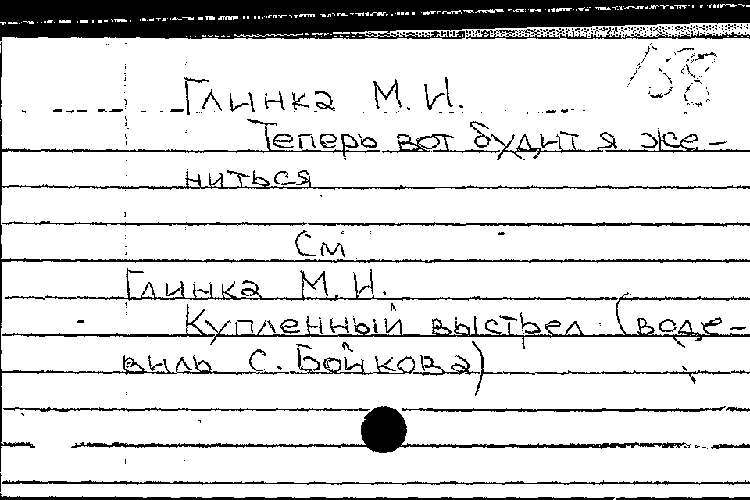 158
Глинка М. И.
Теперь вот будит я же-
ниться
См
Глинка М. И.
Купленный выстрел (воде-
виль С. Бойкова)